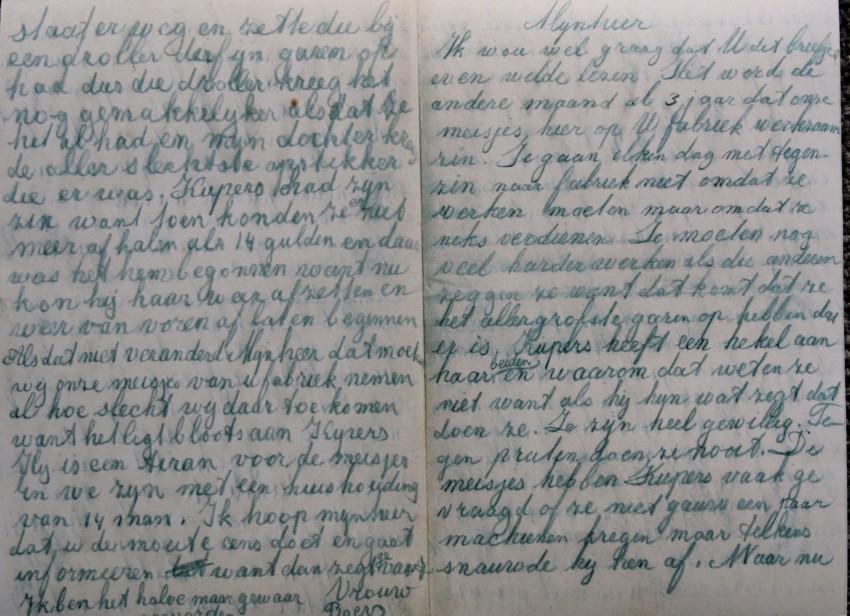 Mynheer
Ik wou wel graag dat U dit briefje
even wilde lezen. Het word de
andere maand al 3 jaar dat onze
meisjes hier op U fabriek werkzaam
zin. Ze gaan elken dag met tegen-
zin naar fabriek niet omdat ze
werken moeten maar omdat ze
niks verdienen. Ze moeten nog
veel harder werken als die anderen
zeggen ze want dat komt dat ze
het allergrofste garen op hebben dat
er is. Kupers heeft een hekel aan
haar beiden en waarom dat weten ze
niet want als hij hun wat zegt dat
doen ze. Ze zyn heel gewillig. Te-
gen praten doen ze nooit. De
meisjes hebben Kupers vaak ge
vraagd of ze niet gauw een paar
machienen kregen maar telkens
snauwde hy hen af. Maar nu
staat er weg en zette die by
een droller die fyn garen op
had dus die droller kreeg het
nog gemakkelyker als dat ze
het al had en myn dochter kreeg
de aller slechtste opstikker
die er was. Kupers had zyn
zin want toen konden ze er niet
meer af halen als 14 gulden en daar
was het hem begonnen want nu
kon hij haar weg afzetten en
weer van voren af laten beginnen
Als dat niet veranderd Mynheer dat moeten
wy onze meisjes van u fabriek nemen
al hoe slecht wy daar toe komen
want het ligt bloots aan Kypers
Hy is een tiran voor de meisjes
en we zyn met een huishouding
van 14 man. Ik hoop mynheer
dat u de moeite eens doet en gaat
informeeren want dan zegt
Ik ben het halve maar gewaar Vrouw
geworden Boers